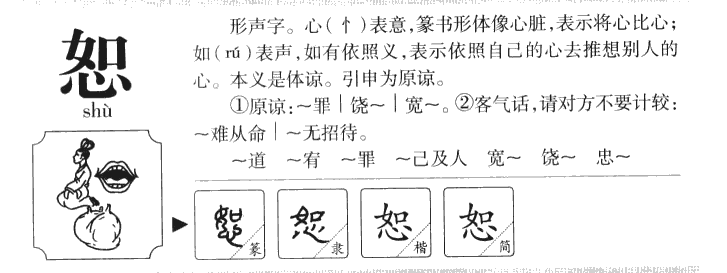 恕
shù
形声字。心(忄)表意,篆书形体像心脏,表示将心比心;
如(rú)表声,如有依照义,表示依照自己的心去推想别人的
心。本义是体谅。引申为原谅。
①原谅:~罪|饶~|宽~。②客气话,请对方不要计较:
~难从命|~无招待。
~道 ~宥 ~罪 ~己及人 宽~ 饶~ 忠~
恕 篆 恕 隶 恕 楷 恕 简